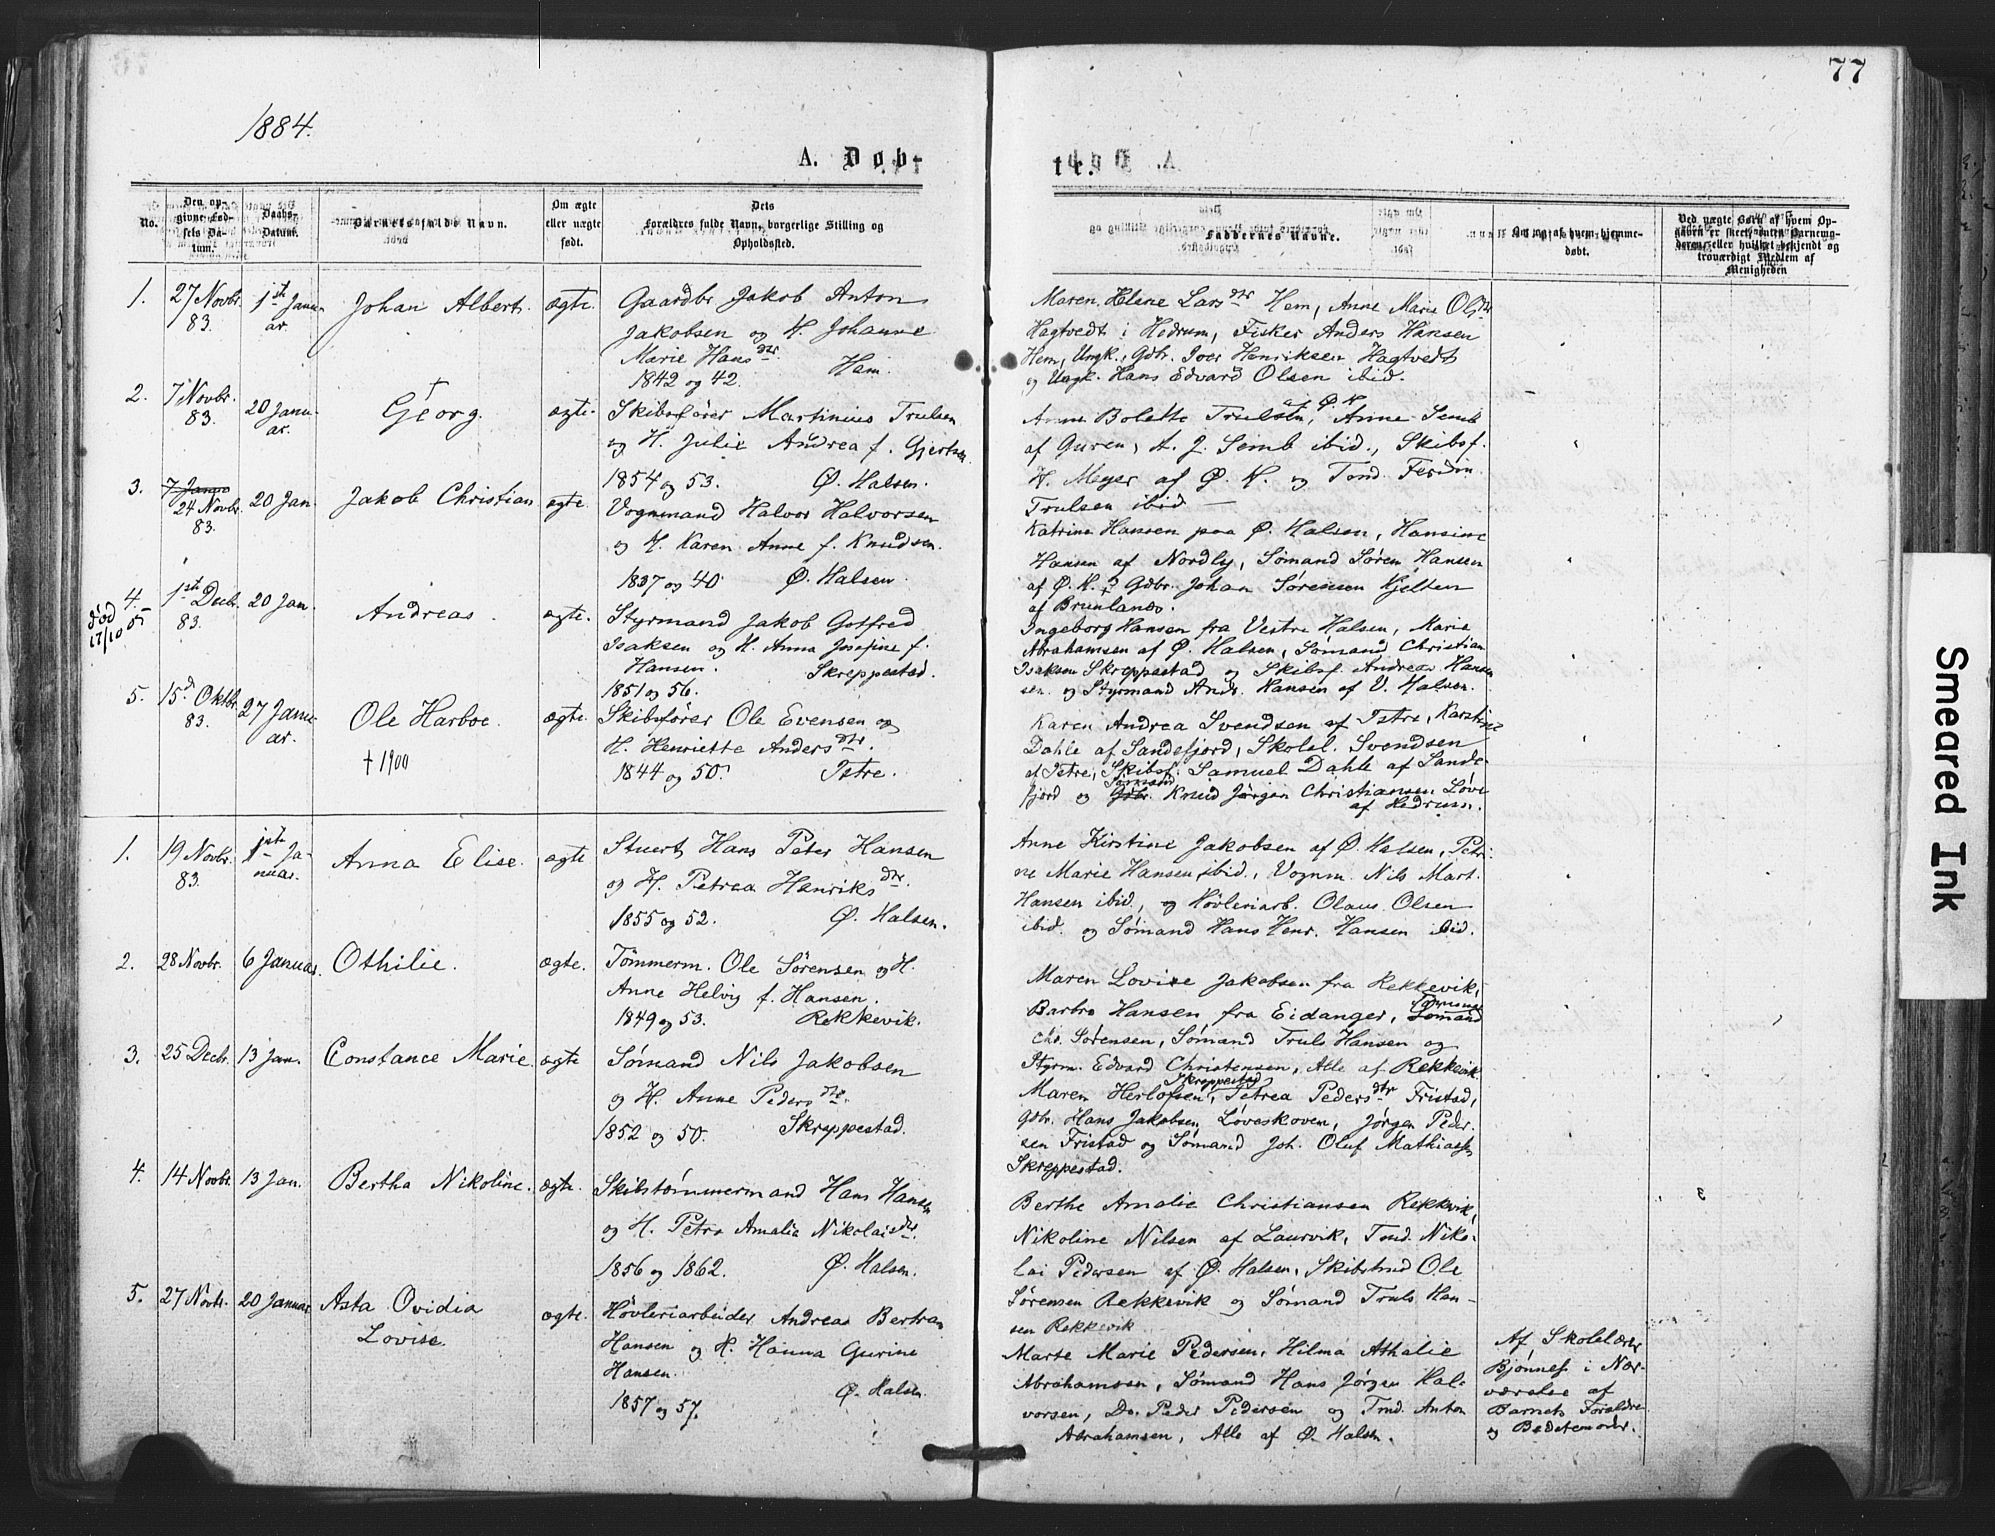 77
1884.
A. Døb-
te.
No.
Den op-
givne Fød-
sels Da-
tum.
Daabs-
Datum.
Barnets fulde Navn.
Om ægte
eller uægte
født.
Dets
Forældres fulde Navn, borgerlige Stilling og
Opholdssted.
Faddernes Navne.
Om og af hvem hjemme-
døbt.
Ved uægte Børn af hvem Op-
gaven er skeet, enten Barnemo-
deren eller hvilket bekjendt og
troværdigt Medlem af
Menigheden
1.
27 Novbr.
83.
1ste Janu-
ar.
Johan Albert.
ægte.
Gaardbr Jakob Anton
Jakobsen og H. Johanne
Marie Hansdtr.
1842 og 42. Hem.
Maren Helene Larsdtr Hem, Anne Marie Olsdtr
Hagtvedt i Hedrum, Fisker Anders Hansen
Hem, Ungk. Gdbr. Iver Henriksen Hagtvedt
og Ungk. Hans Edvard Olsen ibid.
2.
7 Novbr.
83.
20 Janu-
ar.
†
Georg.
ægte.
Skibsfører Martinius Trulsen
og H. Julie Andrea f. Gjertsen.
1854 og 53. Ø. Halsen.
Anne Bolette Trulsen af Ø. H., Anne Semb
af Guren, A. J. Semb ibid., Skibsf.
H. Meyer af Ø. H. og Tmd. Ferdin.
Trulsen ibid
3.
7 Janu
24 Novbr.
83.
20 Jan.
Jakob Christian
ægte.
Vognmand Halvor Halvorsen
og H. Karen Anne f. Knudsen.
1837 og 40. Ø. Halsen.
Katrine Hansen paa Ø. Halsen, Hansine
Hansen af Nordby, Sømand Søren Hansen
af Ø. H. & Gdbr. Johan Sørensen Kjelsen
af Brunlanes.
4.
død
17/10 05
1ste Decbr.
83.
20 Jan.
Andreas.
ægte.
Styrmand Jakob Gotfred
Isaksen og H. Anna Josefine f.
Hansen. Skreppestad.
1851 og 56.
Ingeborg Hansen fra Vestre Halsen, Marie
Abrahamsen af Ø. Halsen, Sømand Christian
Isaksen Skreppestad og Skibsf. Andreas Han-
sen. og Styrmand Ands. Hansen af V. Halsen.
5.
15d Oktbr.
83.
27 Janu-
ar.
Ole Harboe
†1900
ægte.
Skibsfører Ole Evensen og
H. Henriette Andersdtr.
1844 og 50. Istre.
Karen Andrea Svendsen af Istre, Karstine
Dahle af Sandefjord, Skolel. Svendsen
af Istre, Skibsf. Samuel Dahle af Sande-
fjord og Gdbr. Sømand Knud Jørgen Christiansen Løve
af Hedrum.
1.
19 Novbr.
83.
1ste Ja-
nuar.
Anna Elise.
ægte
Stuert Hans Peter Hansen
og H. Petrea Henriksdtr.
1855 og 52. Ø. Halsen.
Anne Kirstine Jakobsen af Ø. Halsen, Petri-
ne Marie Hansen ibid., Vognm. Nils Mart.
Hansen ibid., og Høvleriarb. Olaus Olsen
ibid. og Sømand Hans Henr. Hansen ibid.
2.
28 Novbr.
6 Januar.
Othilie.
ægte.
Tømmerm. Ole Sørensen og H.
Anne Helvig f. Hansen.
1849 og 53. Rekkevik.
Maren Lovise Jakobsen fra Rekkevik,
Barbro Hansen fra Eidanger, Sømand
Chs. Sørensen, Sømand Truls Hansen og
Styrm. Edvard Christensen, Alle af Rekkevik
3.
25 Decbr.
13 Jan.
Constance Marie.
ægte
Sømand Nils Jakobsen
og H. Anne Pedersdtr.
1852 og 50. Skreppestad.
Maren Herlofsen, Skreppestad Petrea Pedersdtr Fristad,
Gdbr. Hans Jakobsen Løveskoven, Jørgen Peder-
sen Fristad og Sømand Joh. Oluf Mathiassn
Skreppestad.
4.
14 Novbr.
13 Jan.
Bertha Nikoline.
ægte.
Skibstømmermand Hans Hansen
og H. Petra Amalia Nikolaisdtr.
1856 og 1862. Ø. Halsen.
Berthe Amalie Christiansen Rekkevik,
Nikoline Nilsen af Laurvik, Tmd. Niko-
lai Pedersen af Ø. Halsen, Skibstmd Ole
Sørensen Rekkevik og Sømand Truls Han-
sen Rekkevik
5.
27 Novbr.
20 Januar
Asta Ovidia
Lovise.
ægte.
Høvleriarbeider Andreas Bertran
Hansen og H. Hanna Gurine
Hansen.
1857 og 57. Ø. Halsen.
Marte Marie Pedersen, Hilma Athalie
Abrahamsen, Sømand Hans Jørgen Hal-
vorsen, Do. Peder Pedersen og Tmd. Anton
Abrahamsen, Alle af Ø. Halsen.
Af Skolelærer
Bjønnes i Nær-
værelse af
Barnets Forældre
og Bedstemoder.
Smeared Ink